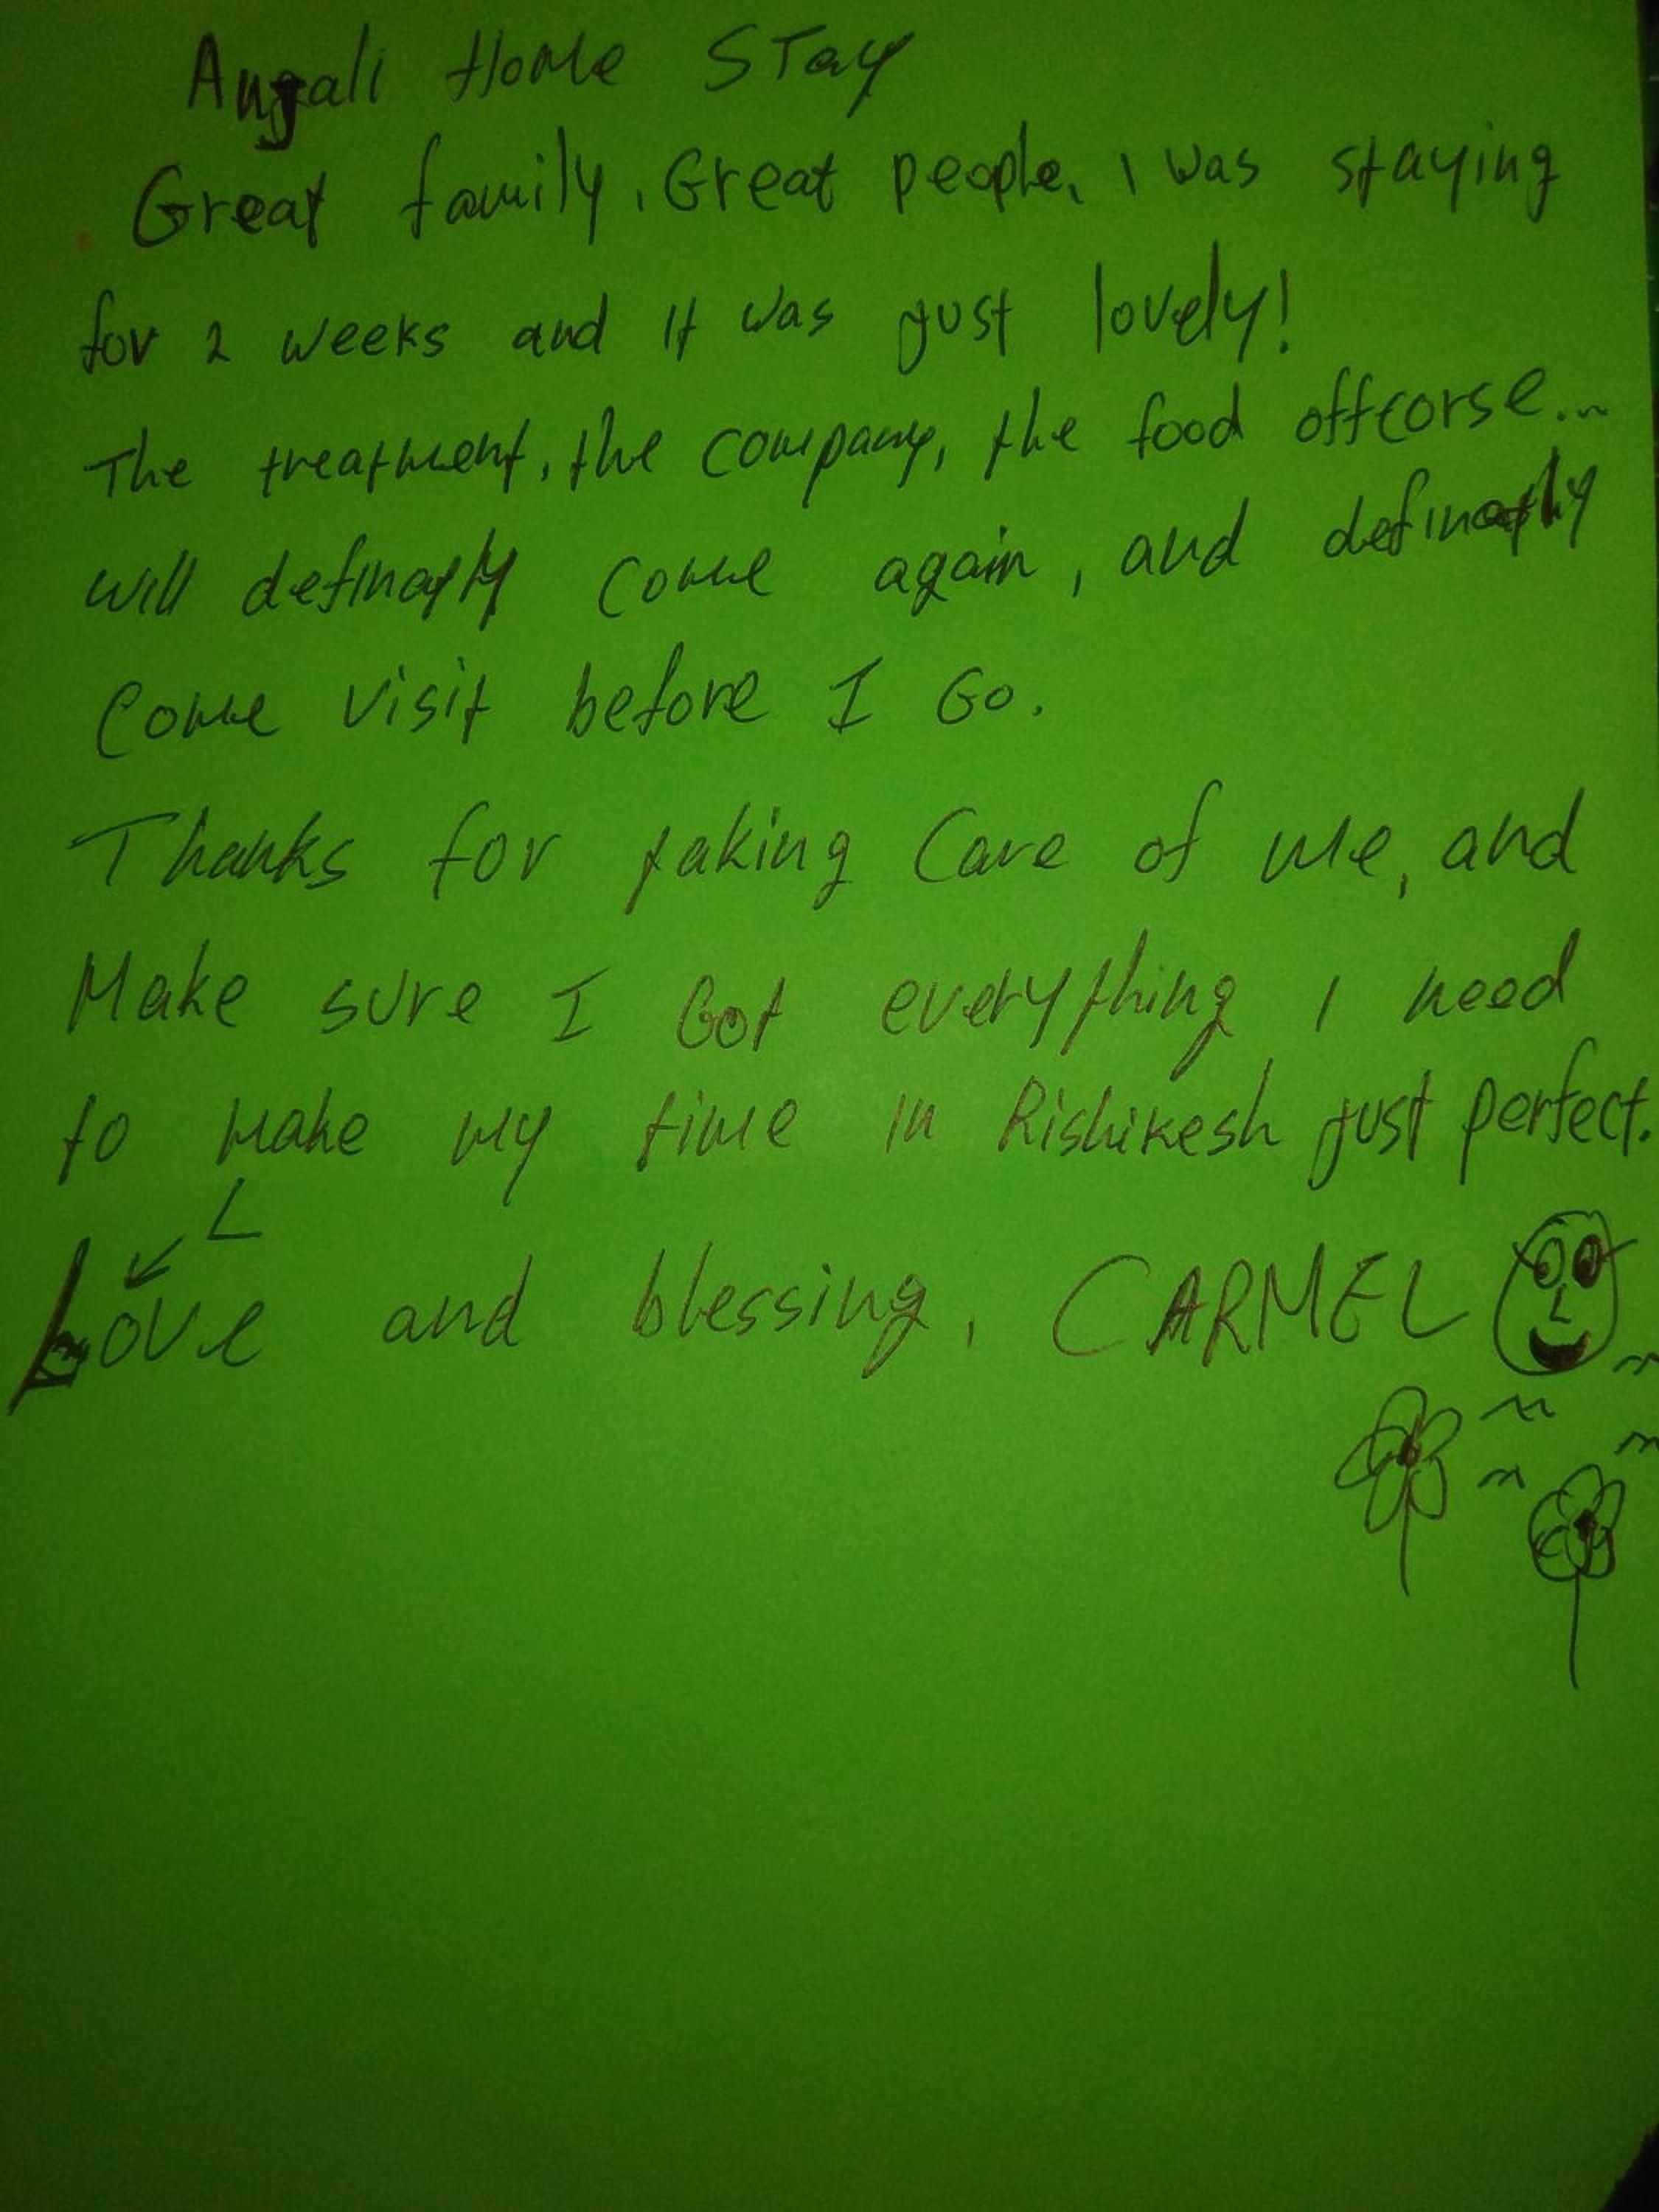 Anjali Home STay
Great family. Great people, I was staying
for 2 weeks and It was just lovely!
The treatment, the company, the food offcorse...
will definatly come again, and definatly
come visit before I Go.
Thanks for taking Care of me, and
Make sure I Got everything I need
to make my time in Rishikesh just perfect.
L
Love and blessing, CARMEL